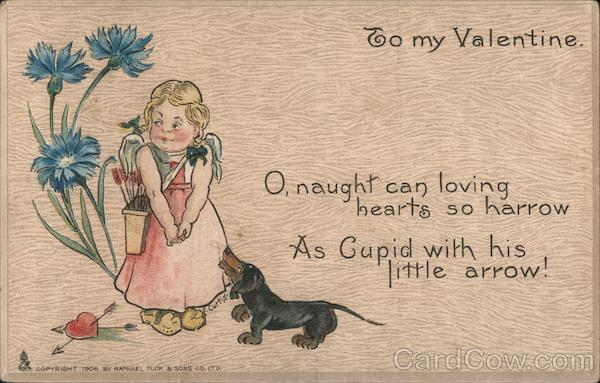 To my Valentine.
O, naught can loving
hearts so harrow
As Cupid with his
little arrow!
E. Curtis
COPYRIGHT 1906 BY RAPHAEL TUCK & SONS CO. LTD.
CardCow.com